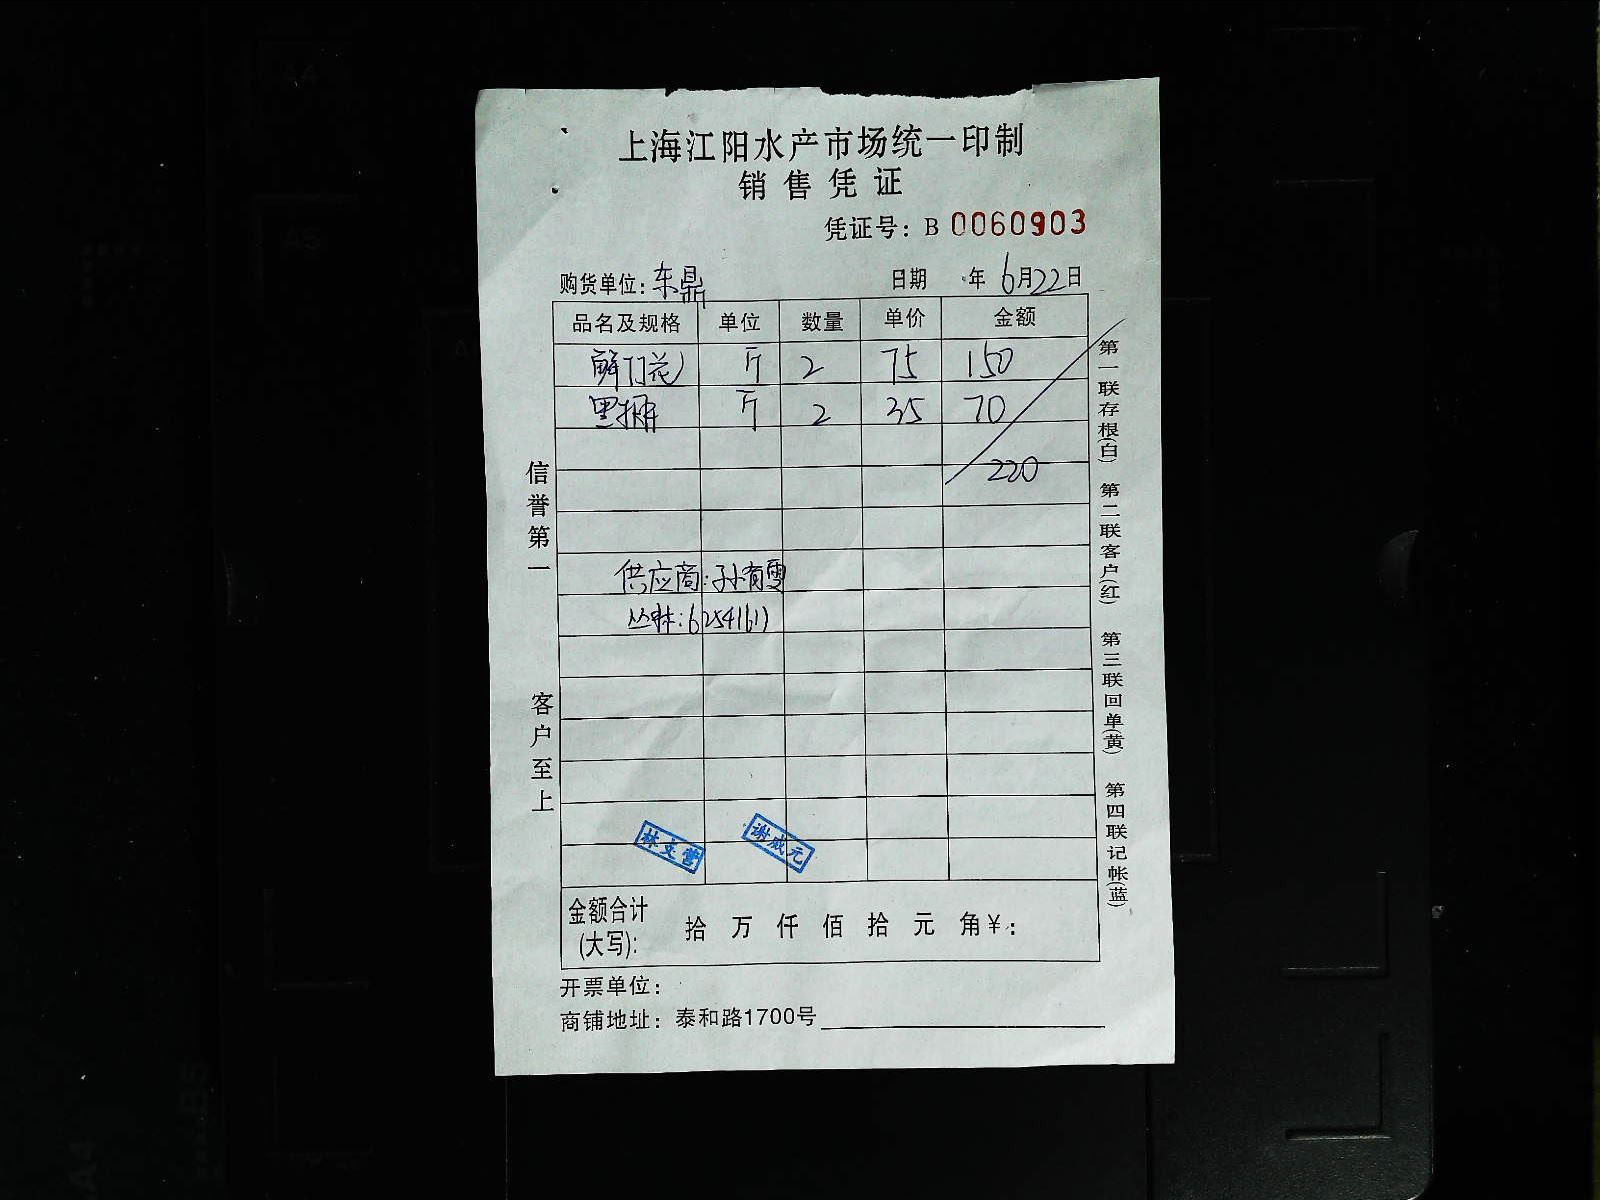 上海江阳水产市场统一印制
销售凭证
凭证号：B 0060903
购货单位：东鼎 日期 年 6月22日
品名及规格 单位 数量 单价 金额
斤 2 75 150
斤 2 35 70
220
供应商：孙有雪
62541611
信誉第一 客户至上
第一联存根(白) 第二联客户(红) 第三联回单(黄) 第四联记帐(蓝)
金额合计(大写)： 拾 万 仟 佰 拾 元 角 ¥：
开票单位：
商铺地址：泰和路1700号